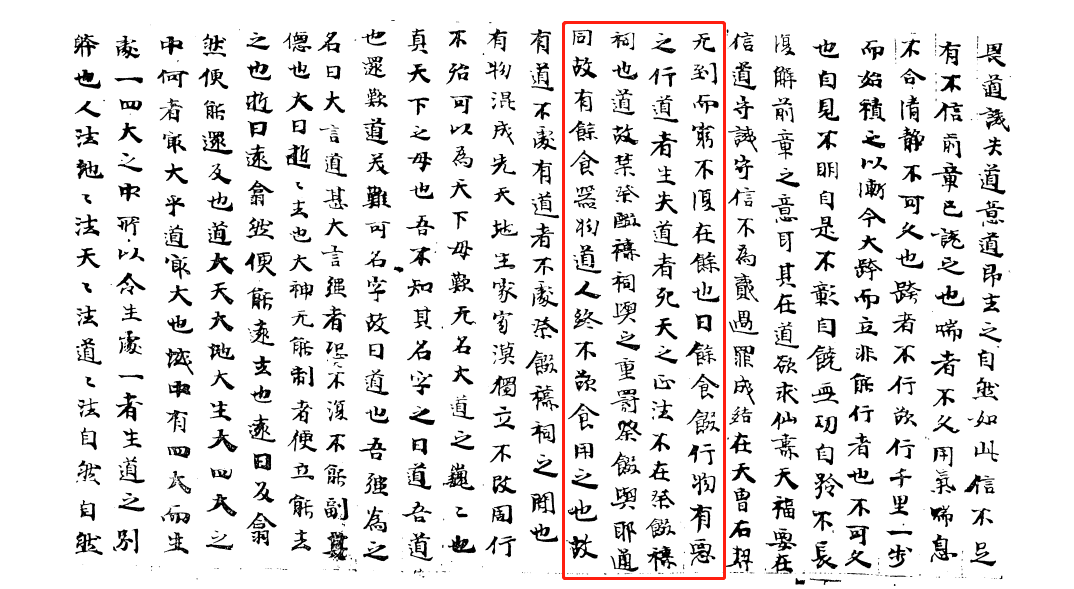 畏道誡失道意道即去之自然如此信不足
有不信前章已說之也喘者不久用氣喘息
不合清靜不可久也跨者不行欲行千里一步
而始積之以漸今大跨而立非能行者也不可久
也自見不明自是不彰自饒無功自矜不長
復解前章之意耳其在道欲求仙壽天福要在
信道守誡守信不為貳過罪成結在天曹右契
无到而窮不復在餘也曰餘食餟行物有惡
之行道者生失道者死天之正法不在祭餟禱
祠也道故禁祭餟禱祠與之重罰祭餟與耶通
同故有餘食器物道人終不欲食用之也故
有道不處有道者不處祭餟禱祠之間也
有物混成先天地生家家漠獨立不改周行
不殆可以為天下母歎无名大道之巍〻也
真天下之母也吾不知其名字之曰道吾道
也還歎道美難可名字故曰道也吾強為之
名曰大言道甚大言強者恐不復不能副其
德也大曰逝〻去也大神无能制者便立能去
之也逝曰遠翕然便能遠去也遠曰反翕
然便能還反也道大天大地大生大四大之
中何者最大乎道最大也域中有四大而生
處一四大之中所以令生處一者生道之別
體也人法地〻法天〻法道〻法自然自然